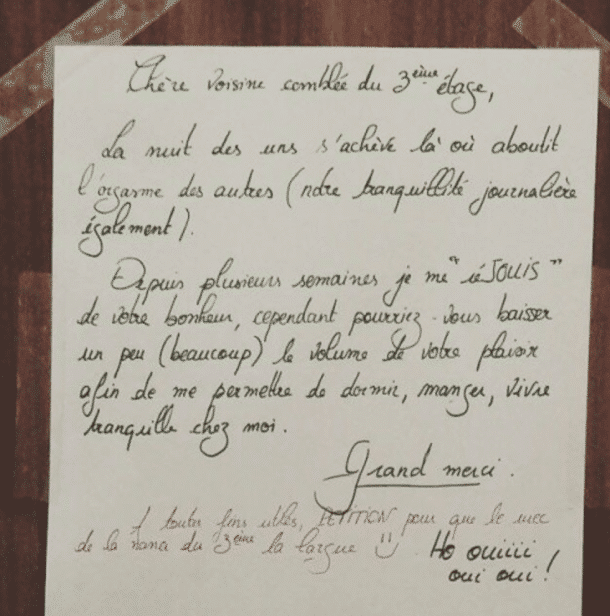 Chère voisine comblée du 3ème étage,
La nuit des uns s'achève là où aboutit
l'orgasme des autres (notre tranquillité journalière
également).
Depuis plusieurs semaines je me "réJOUIS"
de votre bonheur, cependant pourriez-vous baisser
un peu (beaucoup) le volume de votre plaisir
afin de me permettre de dormir, manger, vivre
tranquille chez moi.
Grand merci.
A toutes fins utiles, PETITION pour que le mec
de la nana du 3ème la largue :)
Ho ouiiii
oui oui !